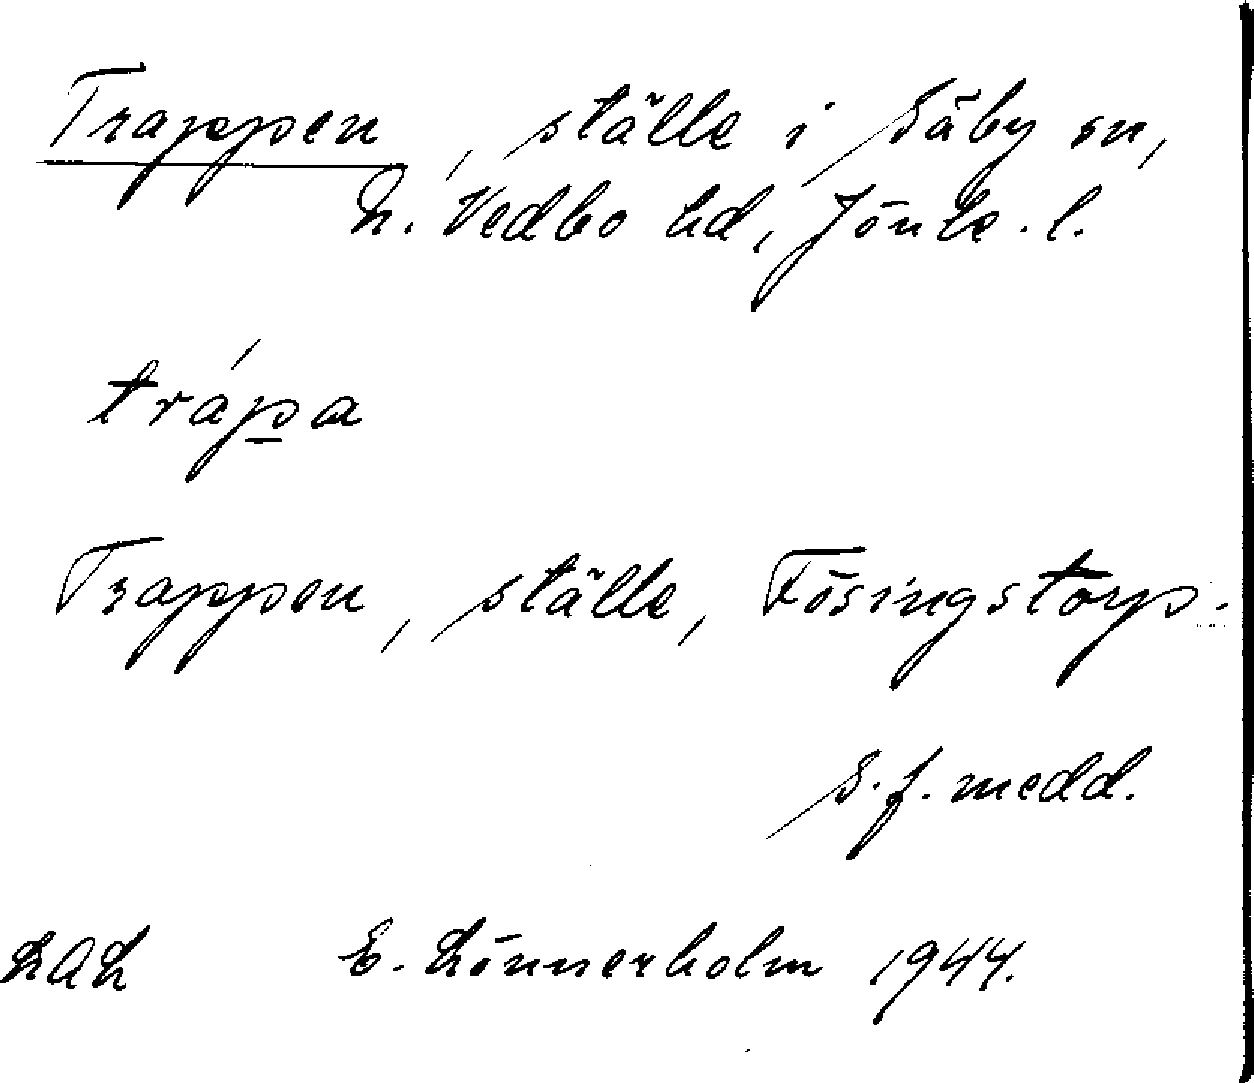 Trappen, ställe i Säby sn,
N. Vedbo hd, Jönk. l.
trápa
Trappen, ställe, Fösingstorp.
S.f. medd.
LAL E. Lönnerholm 1944.